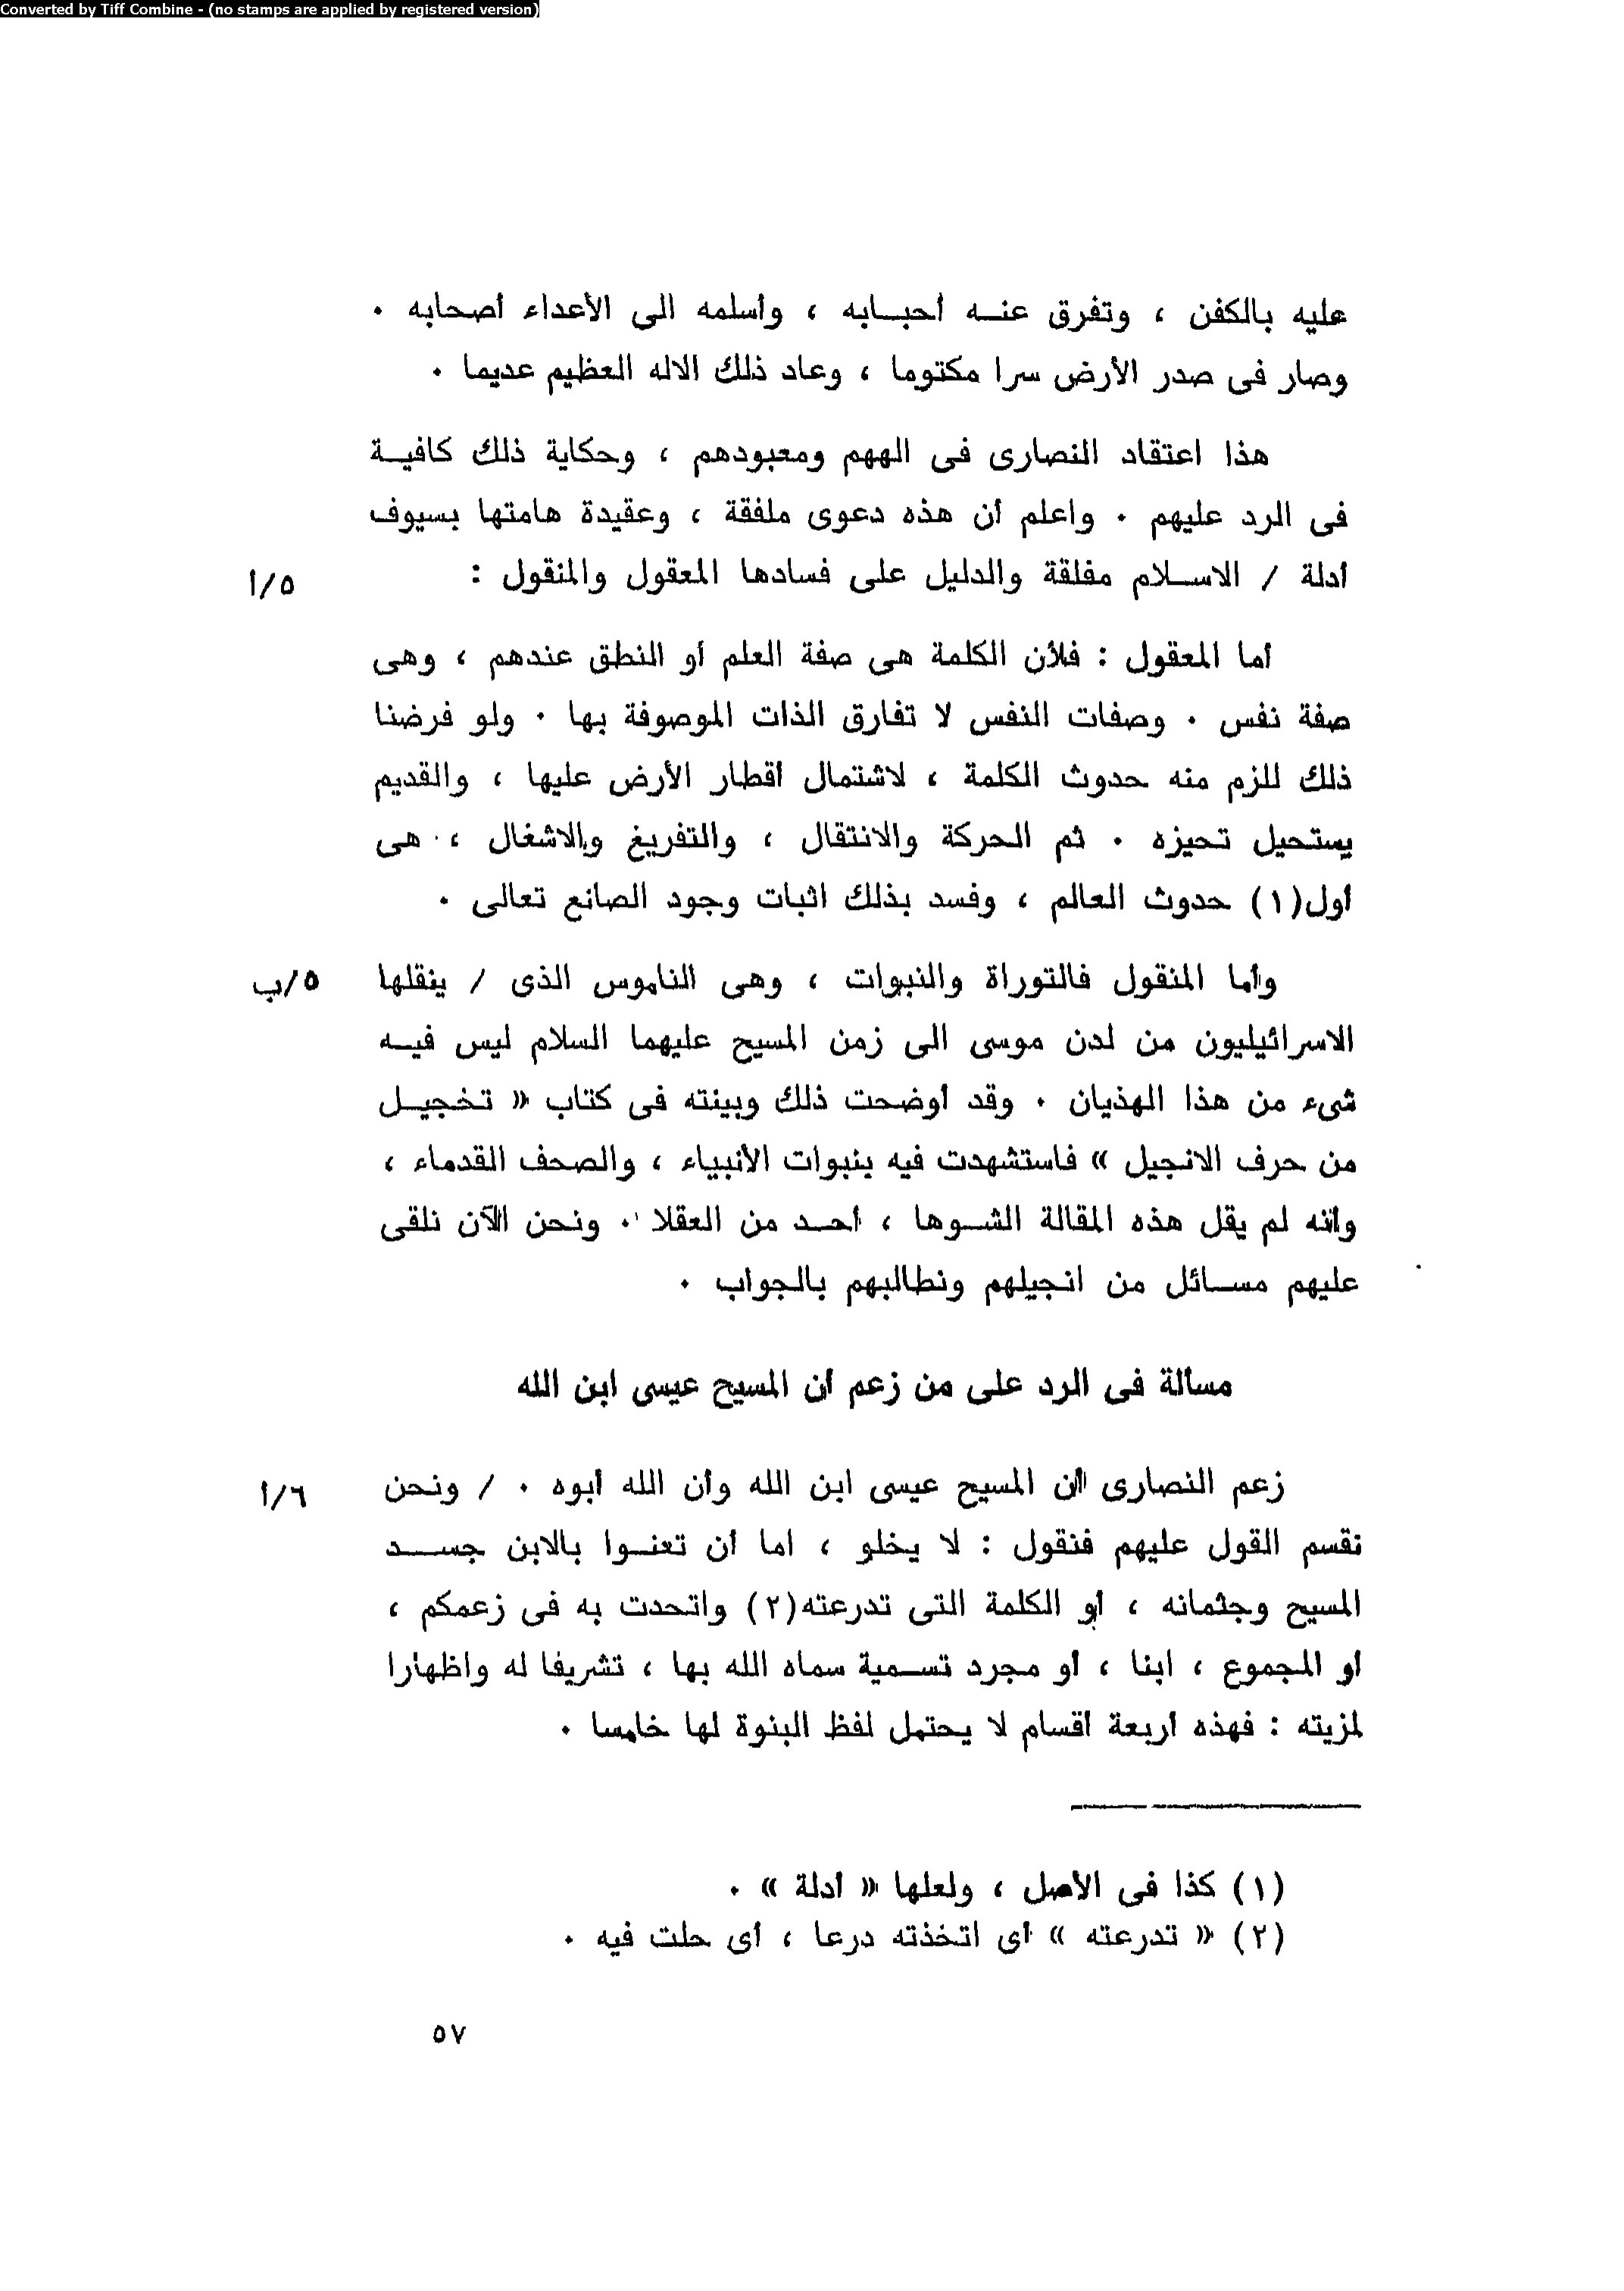 Converted by Tiff Combine - (no stamps are applied by registered version)
عليه بالكفن ، وتفرق عنـــه أحبـــابه ، وأسلمه الى الأعداء أصحابه ٠
وصار فى صدر الأرض سرا مكتوما ، وعاد ذلك الاله العظيم عديما ٠
هذا اعتقاد النصارى فى الههم ومعبودهم ، وحكاية ذلك كافيـــة
فى الرد عليهم ٠ واعلم أن هذه دعوى ملفقة ، وعقيدة هامتها بسيوف
أدلة / الاســـلام مفلقة والدليل على فسادها المعقول والمنقول :
٥/أ
أما المعقول : فلأن الكلمة هى صفة العلم أو النطق عندهم ، وهى
صفة نفس ٠ وصفات النفس لا تفارق الذات الموصوفة بها ٠ ولو فرضنا
ذلك للزم منه حدوث الكلمة ، لاشتمال أقطار الأرض عليها ، والقديم
يستحيل تحيزه ٠ ثم الحركة والانتقال ، والتفريغ والاشغال ، هى
أول(١) حدوث العالم ، وفسد بذلك اثبات وجود الصانع تعالى ٠
وأما المنقول فالتوراة والنبوات ، وهى الناموس الذى / ينقلها
٥/ب
الاسرائيليون من لدن موسى الى زمن المسيح عليهما السلام ليس فيـــه
شىء من هذا الهذيان ٠ وقد أوضحت ذلك وبينته فى كتاب « تخجيـــل
من حرف الانجيل » فاستشهدت فيه بنبوات الأنبياء ، والصحف القدماء ،
وأنه لم يقل هذه المقالة الشـــوها ، أحـــد من العقلا ٠ ونحن الآن نلقى
عليهم مســـائل من انجيلهم ونطالبهم بالجواب ٠
مسألة فى الرد على من زعم أن المسيح عيسى ابن الله
زعم النصارى أن المسيح عيسى ابن الله وأن الله أبوه ٠ / ونحن
٦/أ
نقسم القول عليهم فنقول : لا يخلو ، اما أن تعنـــوا بالابن جســـد
المسيح وجثمانه ، أو الكلمة التى تدرعته(٢) واتحدت به فى زعمكم ،
أو المجموع ، ابنا ، أو مجرد تســـمية سماه الله بها ، تشريفا له واظهارا
لمزيته : فهذه أربعة أقسام لا يحتمل لفظ البنوة لها خامسا ٠
(١) كذا فى الأصل ، ولعلها « أدلة » ٠
(٢) « تدرعته » أى اتخذته درعا ، أى حلت فيه ٠
٥٧